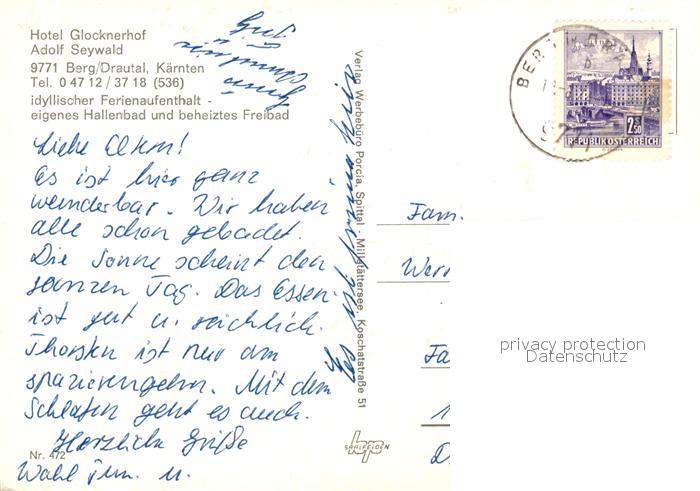 Hotel Glocknerhof
Adolf Seywald
9771 Berg/Drautal, Kärnten
Tel. 0 47 12 / 37 18 (536)
idyllischer Ferienaufenthalt -
eigenes Hallenbad und beheiztes Freibad
Liebe Eltern!
Es ist hier ganz
wunderbar. Wir haben
alle schon gebadet.
Die Sonne scheint den
ganzen Tag. Das Essen
ist gut u. reichlich.
Thorsten ist nur am
spazierengehn. Mit dem
Schlafen geht es auch.
Herzliche Grüße
Nr. 472
Es ist prima hier
Verlag Werbebüro Porcia, Spittal - Millstättersee, Koschatstraße 51
2S50
REPUBLIK ÖSTERREICH
Fam.
Wern
Fa
1
D
privacy protection
Datenschutz
SAALFELDEN